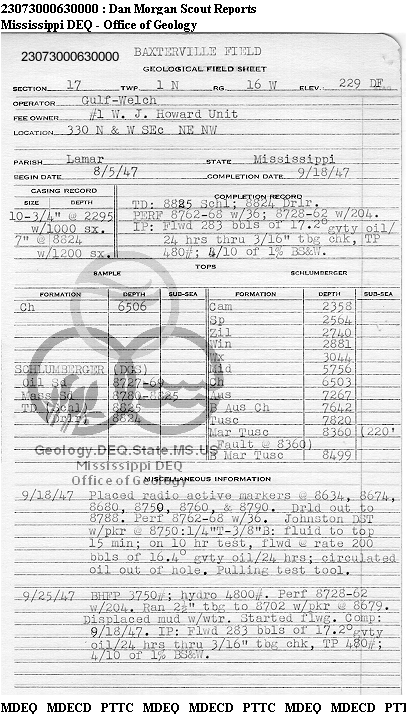 23073000630000 : Dan Morgan Scout Reports
Mississippi DEQ - Office of Geology
23073000630000 BAXTERVILLE FIELD
GEOLOGICAL FIELD SHEET
SECTION 17 TWP. 1 N RG. 16 W ELEV: 229 DF
OPERATOR Gulf-Welch
FEE OWNER #1 W. J. Howard Unit
LOCATION 330 N & W SEc NE NW
PARISH Lamar STATE Mississippi
BEGIN DATE 8/5/47 COMPLETION DATE 9/18/47
CASING RECORD COMPLETION RECORD
SIZE DEPTH TD: 8825 Schl; 8824 Drlr.
10-3/4" @ 2295 PERF 8762-68 w/36; 8728-62 w/204.
w/1000 sx. IP: Flwd 283 bbls of 17.2° gvty oil/
7" @ 8824 24 hrs thru 3/16" tbg chk, TP
w/1200 sx. 480#; 4/10 of 1% BS&W.
TOPS
SAMPLE SCHLUMBERGER
FORMATION DEPTH SUB-SEA FORMATION DEPTH SUB-SEA
Ch 6506 Cam 2358
Sp 2564
Zil 2740
Win 2881
Wx 3044
Mid 5756
SCHLUMBERGER (DGS) Ch 6503
Oil Sd 8727-69 Aus 7267
Mass Sd 8780-8825 B Aus Ch 7642
TD (Schl) 8825 Tusc 7820
Drlr 8824 Mar Tusc 8360 (220'
Fault @ 8360)
B Mar Tusc 8499
Geology.DEQ.State.MS.US
Mississippi DEQ
Office of Geology
MISCELLANEOUS INFORMATION
9/18/47 Placed radio active markers @ 8634, 8674,
8680, 8750, 8760, & 8790. Drld out to
8788. Perf 8762-68 w/36. Johnston DST
w/pkr @ 8750:1/4"T-3/8"B: fluid to top
15 min; on 10 hr test, flwd @ rate 200
bbls of 16.4° gvty oil/24 hrs; circulated
oil out of hole. Pulling test tool.
9/25/47 BHFP 3750#; hydro 4800#. Perf 8728-62
w/204. Ran 2½" tbg to 8702 w/pkr @ 8679.
Displaced mud w/wtr. Started flwg. Comp:
9/18/47. IP: Flwd 283 bbls of 17.2° gvty
oil/24 hrs thru 3/16" tbg chk, TP 480#;
4/10 of 1% BS&W.
MDEQ MDECD PTTC MDEQ MDECD PTTC MDEQ MDECD PTT